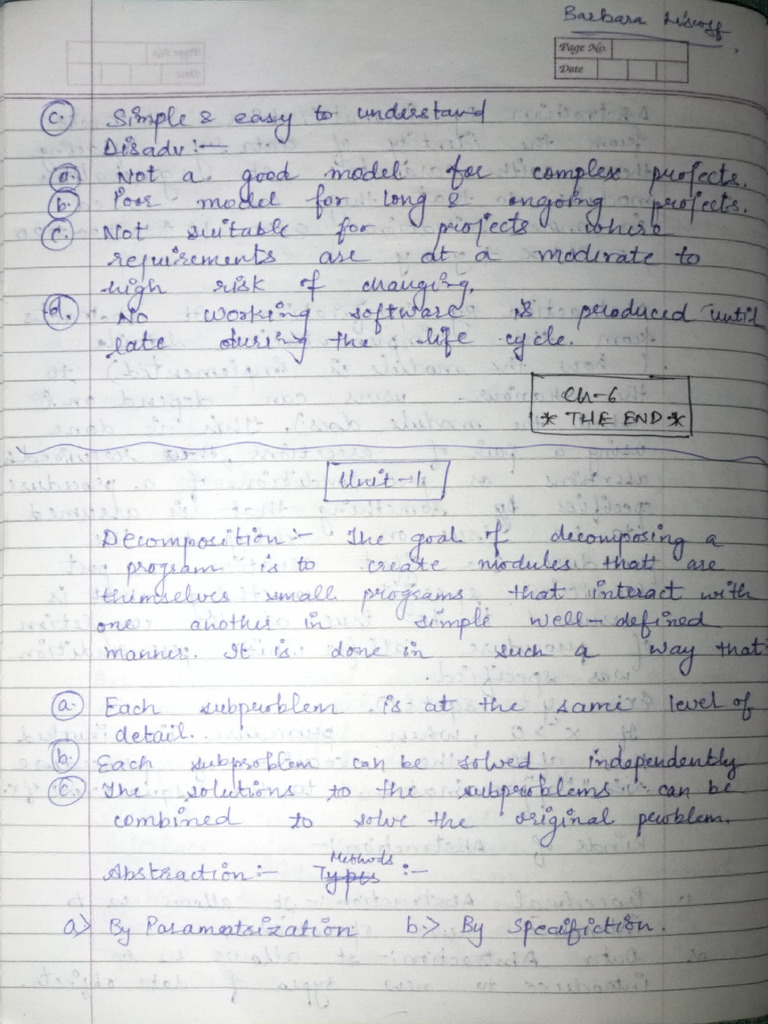 Barbara Liscoff
Page No.
Date
c. Simple & easy to understand
Disadv :-
a. Not a good model for complex projects.
b. Poor model for long & ongoing projects.
c. Not suitable for projects where
requirements are at a moderate to
high risk of changing.
d. No working software is produced until
late during the life cycle.
Ch-6
* THE END *
Unit-1
Decomposition :- The goal of decomposing a
program is to create modules that are
themselves small programs that interact with
one another in simple well-defined
manner. It is done in such a way that
a. Each subproblem is at the same level of
detail.
b. Each subproblem can be solved independently
c. The solutions to the subproblems can be
combined to solve the original problem.
Methods
Abstraction :- Types :-
a> By Parametrization b> By Specifiction.